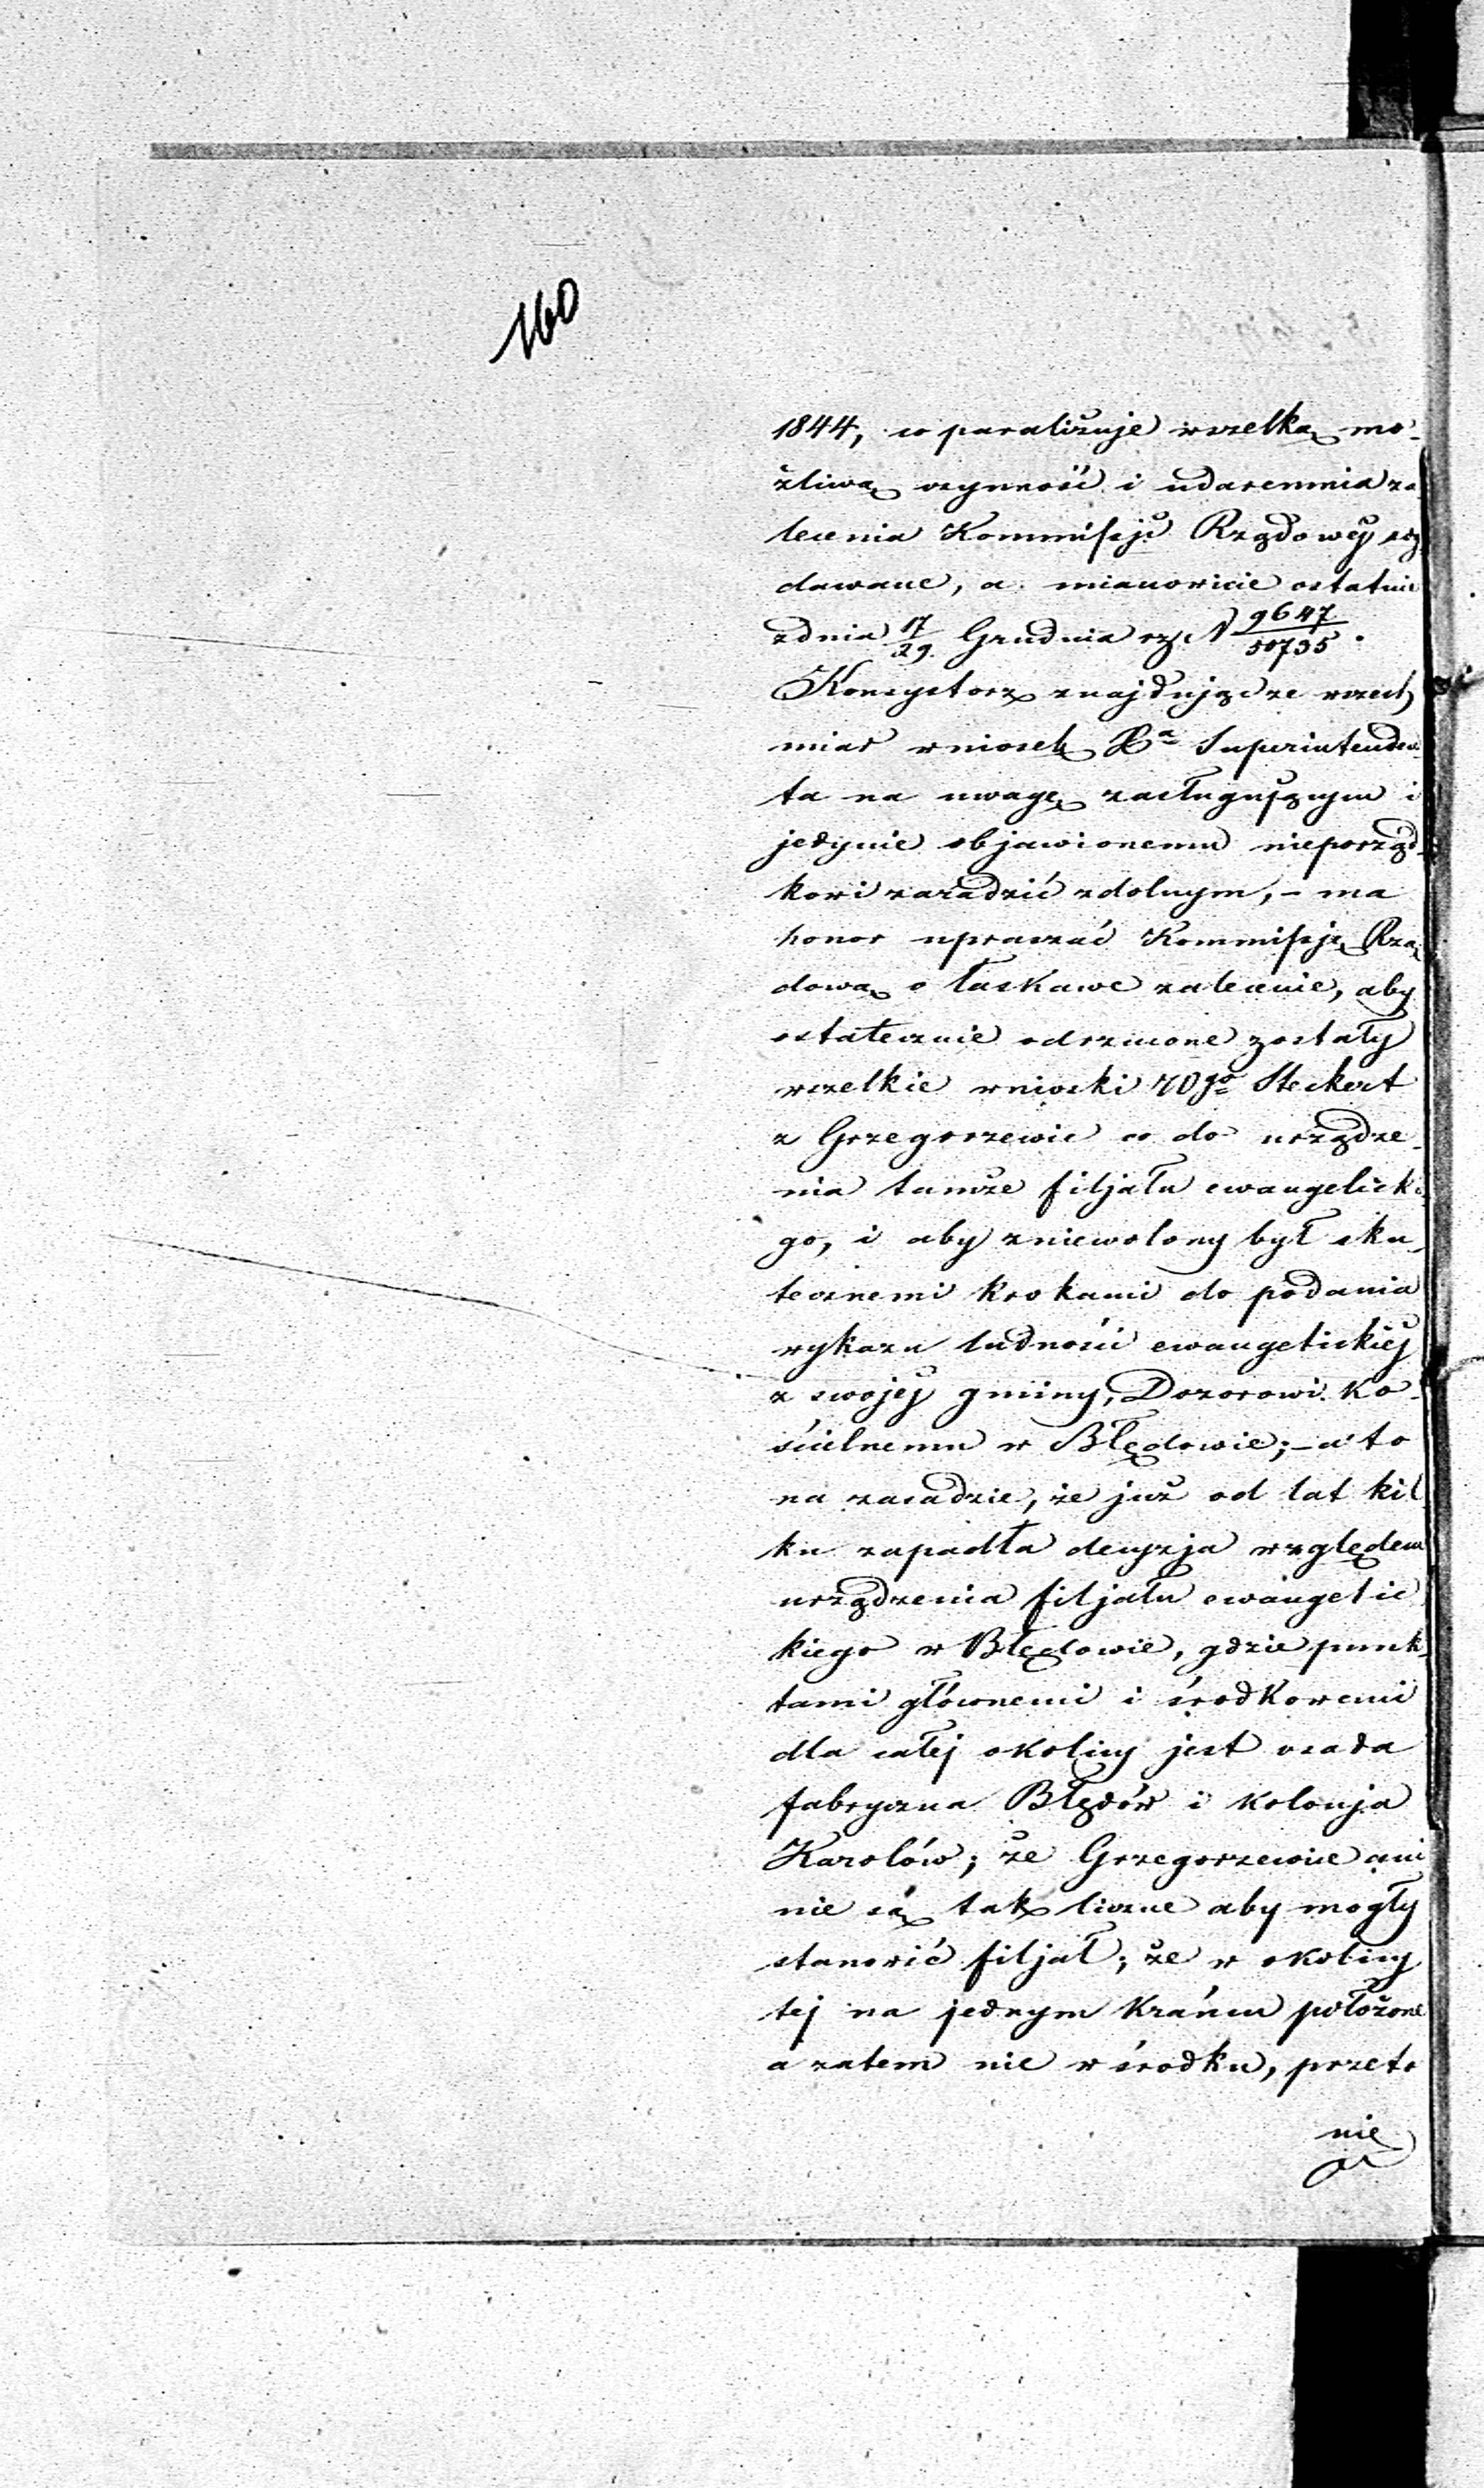 160
1844, co paraliżuje wszelką mo-
żliwą czynność i udaremnia za
lecenia Kommissji Rządowej wy
dawane, a mianowicie ostatnie
z dnia 17/29 Grudnia rz. N 9647/50735.
Konsystorz znajdując ze wszech
miar wniosek Xa Superintenden
ta na uwagę zasługującym i
jedynie objawionemu nieporząd-
kowi zaradzić zdolnym, – ma
honor upraszać Kommissję Rzą
dową o łaskawe zalecenie, aby
ostatecznie odrzucone zostały
wszelkie wnioski WJgo Steckert
z Grzegorzewic co do urządze-
nia tamże filjału ewangelicki
go, i aby zniewolony był sku-
tecznemi krokami do podania
wykazu ludności ewangelickiej
z swojej gminy, Dozorowi Ko-
ścielnemu w Błędowie; – a to
na zasadzie, że już od lat kil
ku zapadła decyzja względem
urządzenia filjału ewangelic
kiego w Błędowie, gdzie punk-
tami głównemi i środkowemi
dla całej okolicy jest osada
fabryczna Błędów i kolonja
Karolów; że Grzegorzewice ani
nie są tak liczne aby mogły
stanowić filjał; że w okolicy
tej na jednym krańcu położone
a zatem nie w środku, przeto
nie